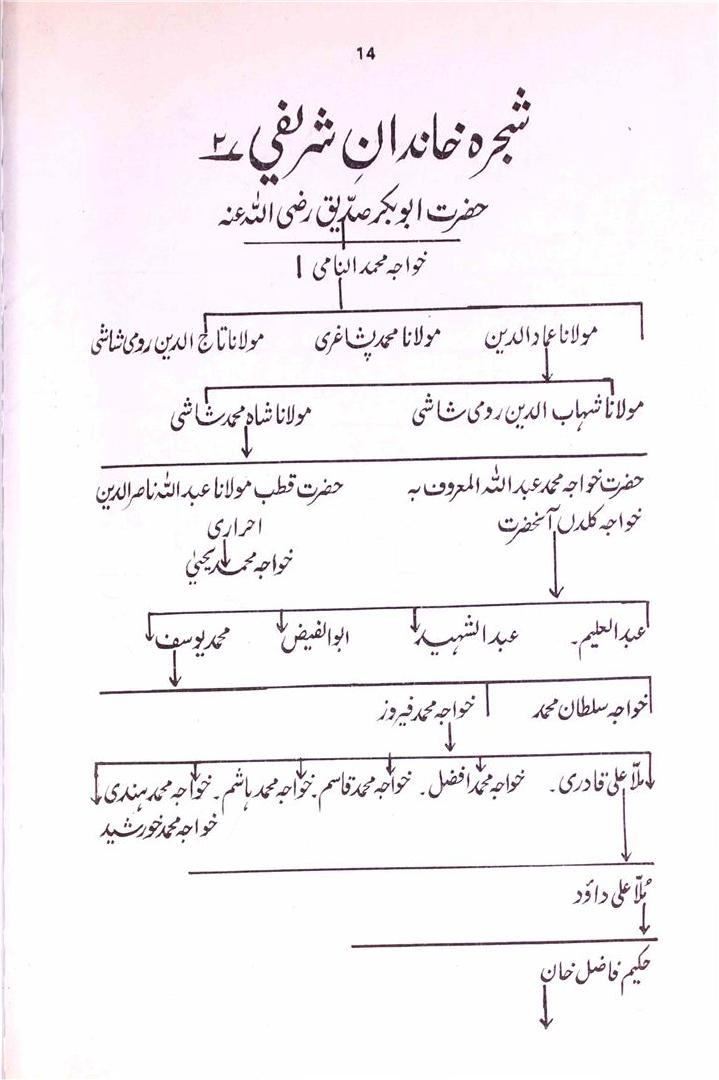 14
شجرہ خاندانِ شریفی ۲
حضرت ابوبکر صدّیق رضی اللہ عنہ
خواجہ محمد النامی
مولانا عماد الدین مولانا محمد پشاغری مولانا تاج الدین رومی شاشی
مولانا شہاب الدین رومی شاشی مولانا شاہ محمد شاشی
حضرت خواجہ محمد عبد اللہ المعروف بہ حضرت قطب مولانا عبد اللہ ناصر الدین
خواجہ کلدں آنحضرت احراری
خواجہ محمد یحییٰ
عبد العلیم۔ عبد الشہید ابو الفیض محمد یوسف
خواجہ سلطان محمد خواجہ محمد فیروز
ملّا علی قادری۔ خواجہ محمد افضل۔ خواجہ محمد قاسم۔ خواجہ محمد ہاشم۔ خواجہ محمد ہندی
خواجہ محمد خورشید
مُلّا علی داؤد
حکیم فاضل خان